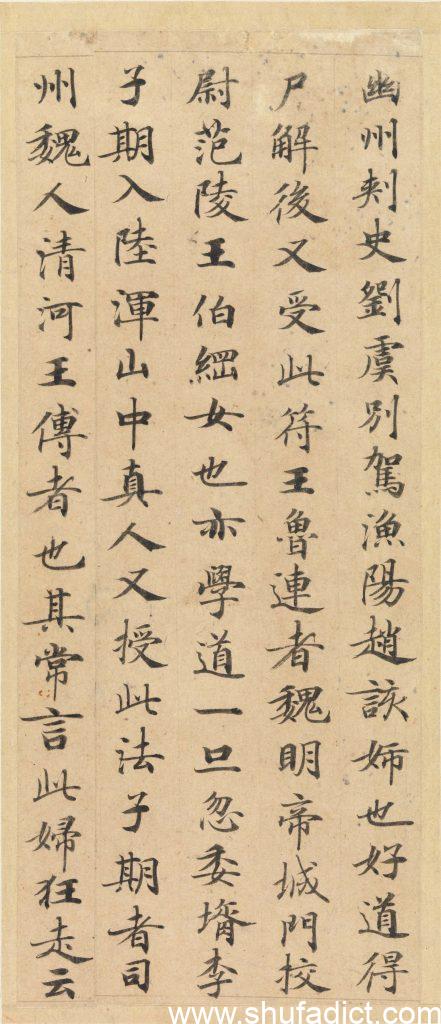 幽州刾史劉虞別駕漁陽趙該姊也好道得
尸解後又受此符王魯連者魏明帝城門挍
尉范陵王伯綱女也亦學道一旦忽委壻李
子期入陸渾山中真人又授此法子期者司
州魏人清河王傅者也其常言此婦狂走云
www.shufadict.com